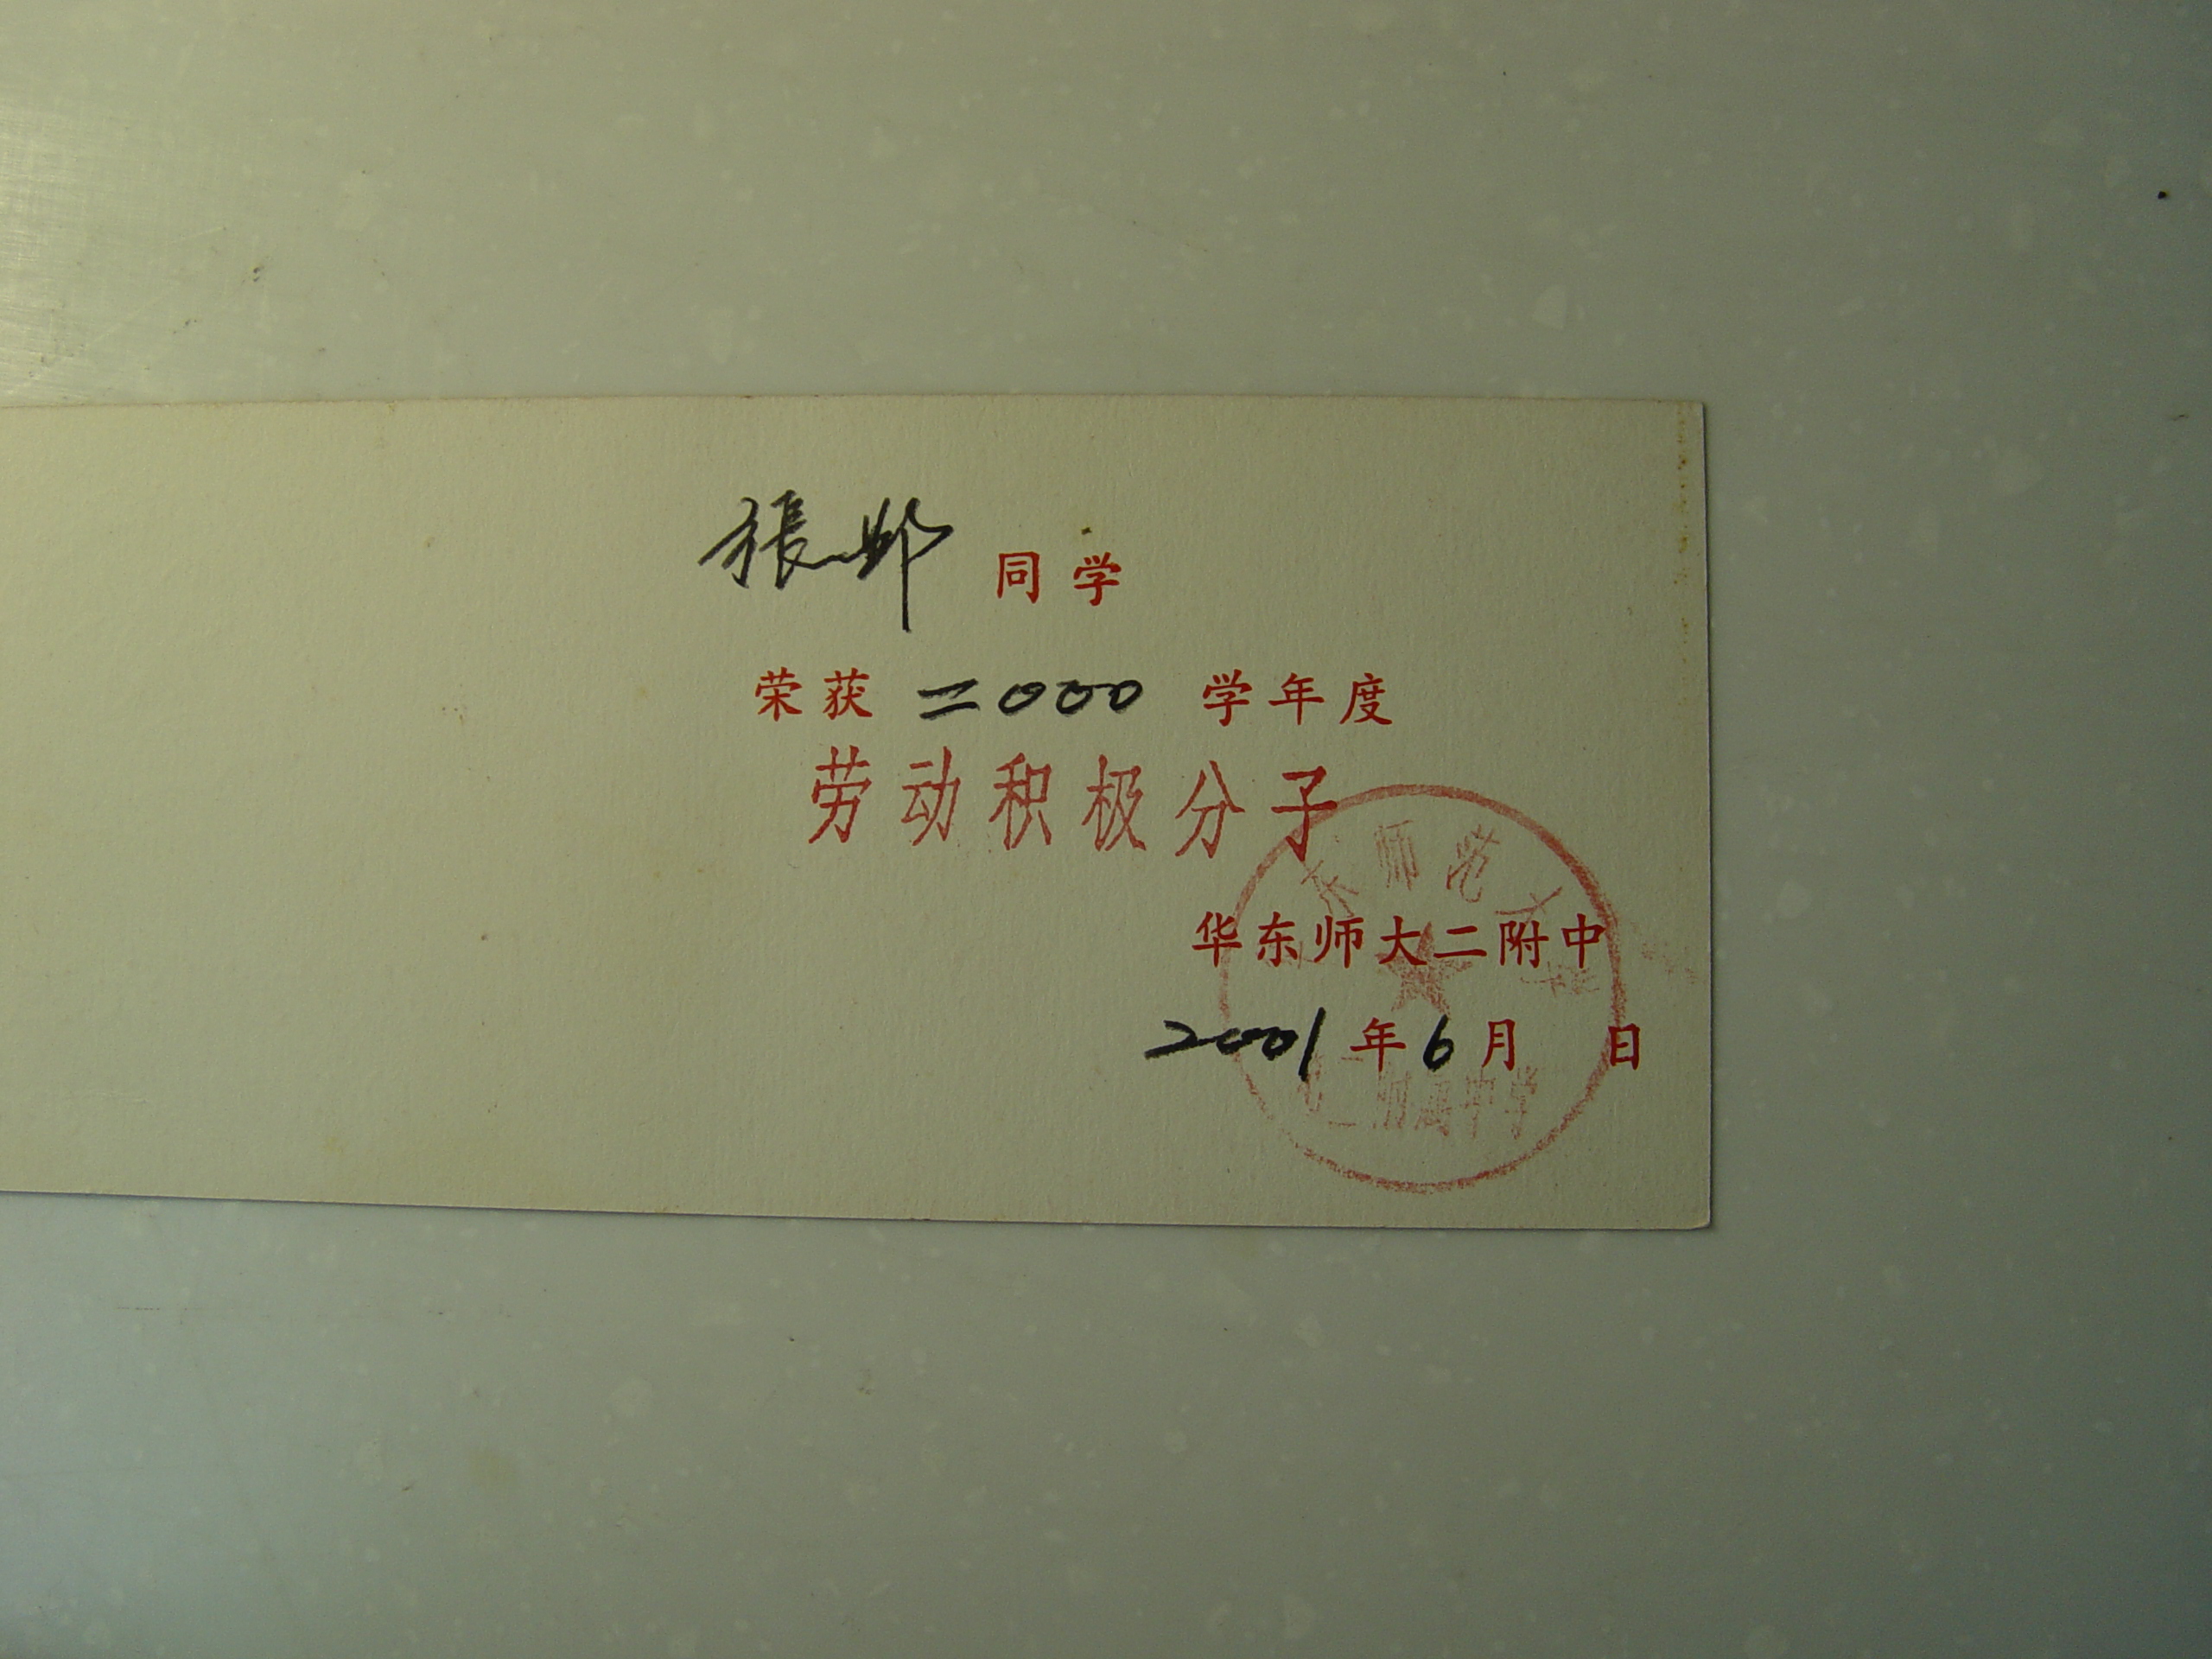 張邺 同学
荣获 二000 学年度
劳动积极分子
华东师大二附中
2001 年 6 月 日
东师范大
第二附属中学